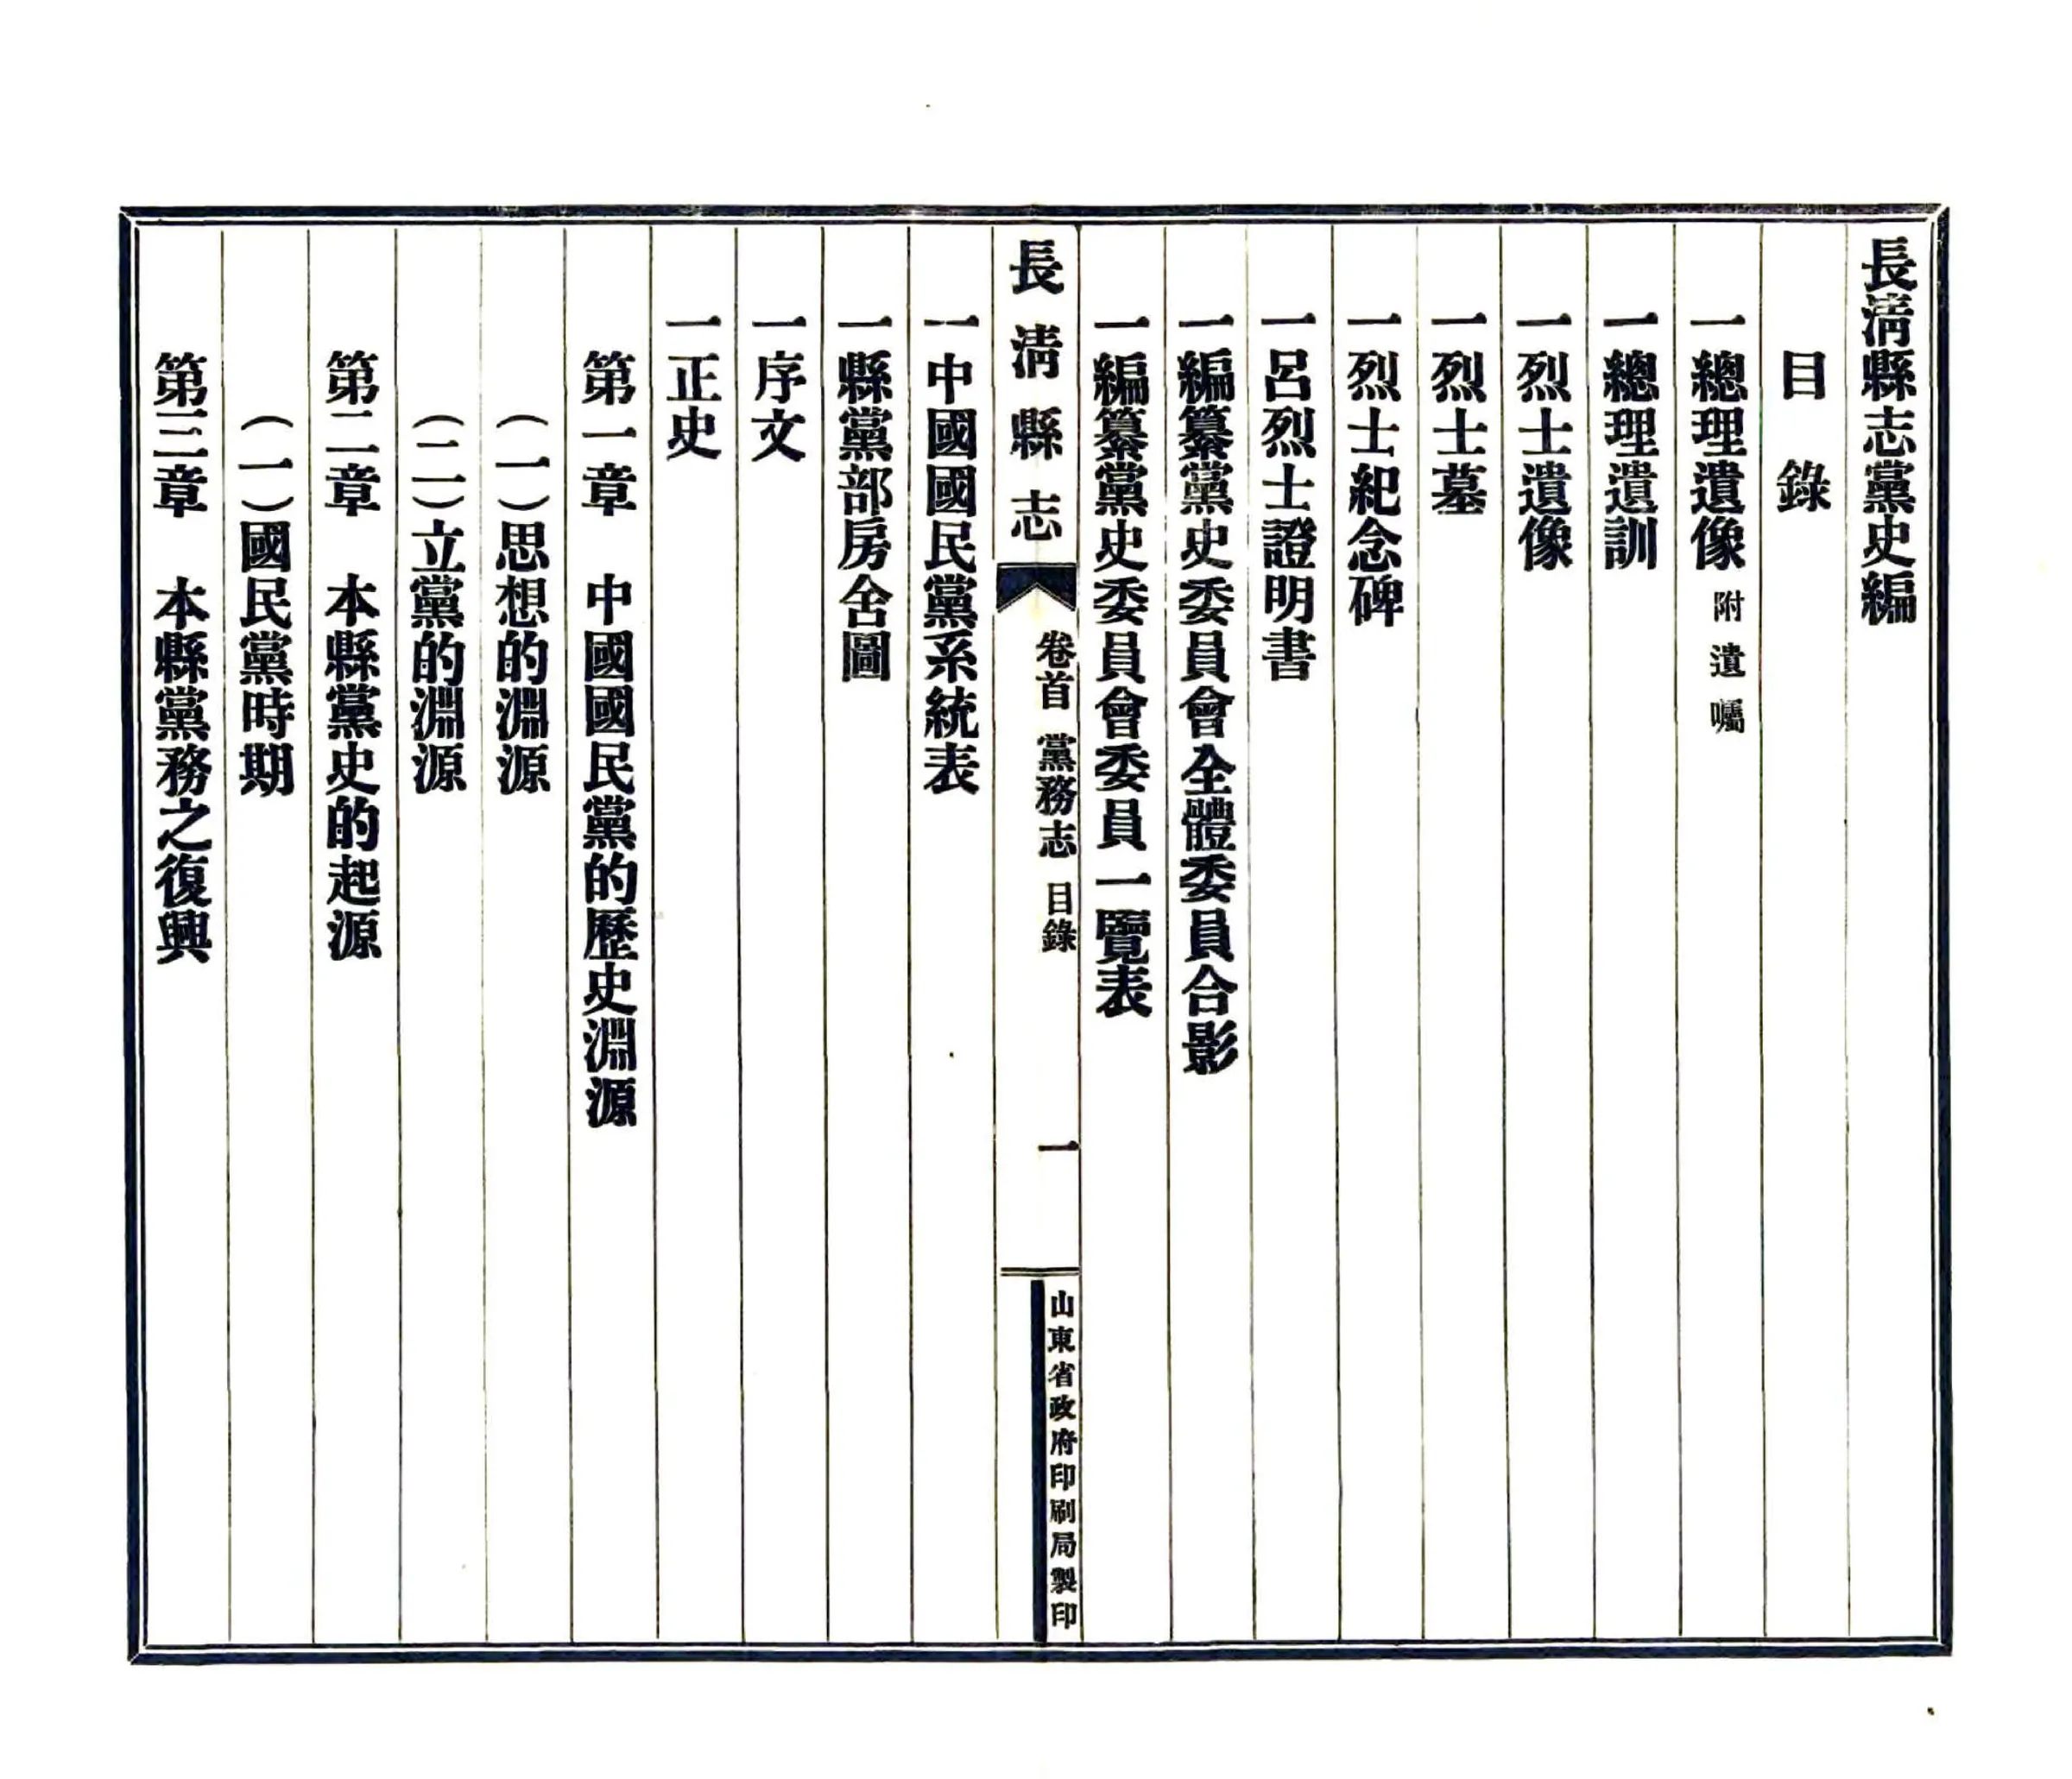 長淸縣志黨史編
目錄
一總理遺像 附遺囑
一總理遺訓
一烈士遺像
一烈士墓
一烈士紀念碑
一呂烈士證明書
一編纂黨史委員會全體委員合影
一編纂黨史委員會委員一覽表
長淸縣志 卷首 黨務志 目錄 一 山東省政府印刷局製印
一中國國民黨系統表
一縣黨部房舍圖
一序文
一正史
第一章 中國國民黨的歷史淵源
(一)思想的淵源
(二)立黨的淵源
第二章 本縣黨史的起源
(一)國民黨時期
第三章 本縣黨務之復興